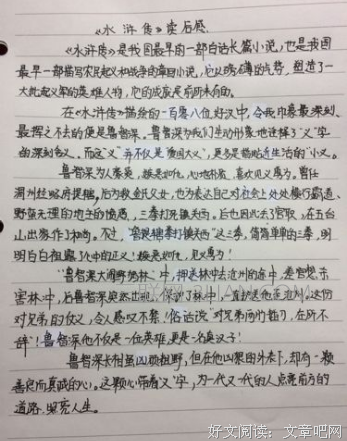 《水浒传》读后感
《水浒传》是我国最早的一部白话长篇小说,也是我国
最早一部描写农民起义和战争的章回小说,它以磅礴的气势,塑造了一
大批起义军的英雄人物,它的成就是前所未有的。
在《水浒传》描绘的一百零八位好汉中,令我印象最深刻、
最挥之不去的便是鲁智深。鲁智深为我们生动形象地诠释了“义”字
的深刻含义。而这“义”并不仅是“爱国大义”,更多是贴近生活的“小义。
鲁智深为人豪爽,嫉恶如仇,心地朴质,喜欢见义勇为。曾任
渭州经略府提辖,后为救金氏父女,也为表达自己对社会上处处横行霸道、
野蛮无理的地主的愤恨,三拳打死镇关西。后也因此丢官职,在五台
山出家作了和尚。不过,“鲁提辖拳打镇关西”这三拳,简简单单的三拳,明
明白白袒露了心中的正义!嫉恶如仇,见义勇为!
“鲁智深大闹野猪林”中,押送林冲去沧州的途中,差官想害
害林中,后鲁智深突然出现,保护了林冲,一直护送他至沧州,这份
对兄弟的仗义,令人感叹不暂!俗话说“对兄弟两肋插刀,在所不
辞”!鲁智深他不仅是一位英雄,更是一名真汉子!
鲁智深长相虽凶狠粗野,但在他凶狠的外表下,却有一颗
善良而真诚的心。这颗心带着“义”字,为一代又一代的人点亮前方的
道路,照亮人生。
好文阅读:文章吧网